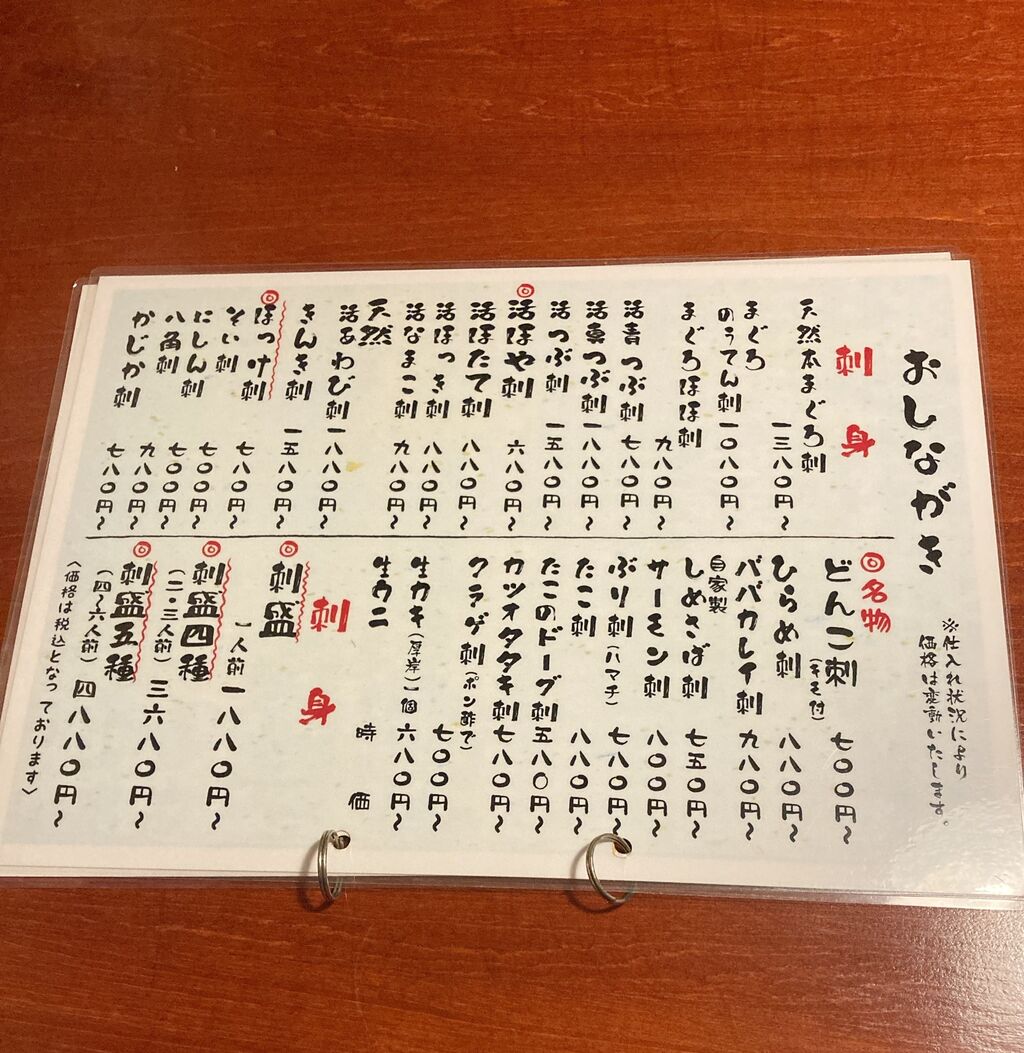 おしながき
※仕入れ状況により
価格は変動いたします。
刺身
天然本まぐろ刺 一三八〇円〜
まぐろ
のうてん刺 一〇八〇円〜
まぐろほほ刺 九八〇円〜
活青つぶ刺 七八〇円〜
活真つぶ刺 一八八〇円〜
活つぶ刺 一五八〇円〜
◎活ほや刺 六八〇円〜
活ほたて刺 八八〇円〜
活ほっき刺 八八〇円〜
活なまこ刺 九八〇円〜
天然
活あわび刺 一八八〇円〜
きんき刺 一五八〇円〜
◎ほっけ刺 七八〇円〜
そい刺 七〇〇円〜
にしん刺 七〇〇円〜
八角刺 九八〇円〜
かじか刺 七八〇円〜
◎名物
どんこ刺(キモ付) 七〇〇円〜
ひらめ刺 八八〇円〜
ババカレイ刺 九八〇円〜
自家製
しめさば刺 七五〇円〜
サーモン刺 八〇〇円〜
ぶり刺(ハマチ) 七八〇円〜
たこ刺 八八〇円〜
たこのドーブ刺 五八〇円〜
カツオタタキ刺 七八〇円〜
クラゲ刺(ポン酢で) 七〇〇円〜
生カキ(厚岸)一個 六八〇円〜
生ウニ 時価
刺身
◎刺盛 一人前 一八八〇円〜
◎刺盛四種(二・三人前) 三六八〇円〜
◎刺盛五種(四〜六人前) 四八八〇円〜
〈価格は税込となっております〉